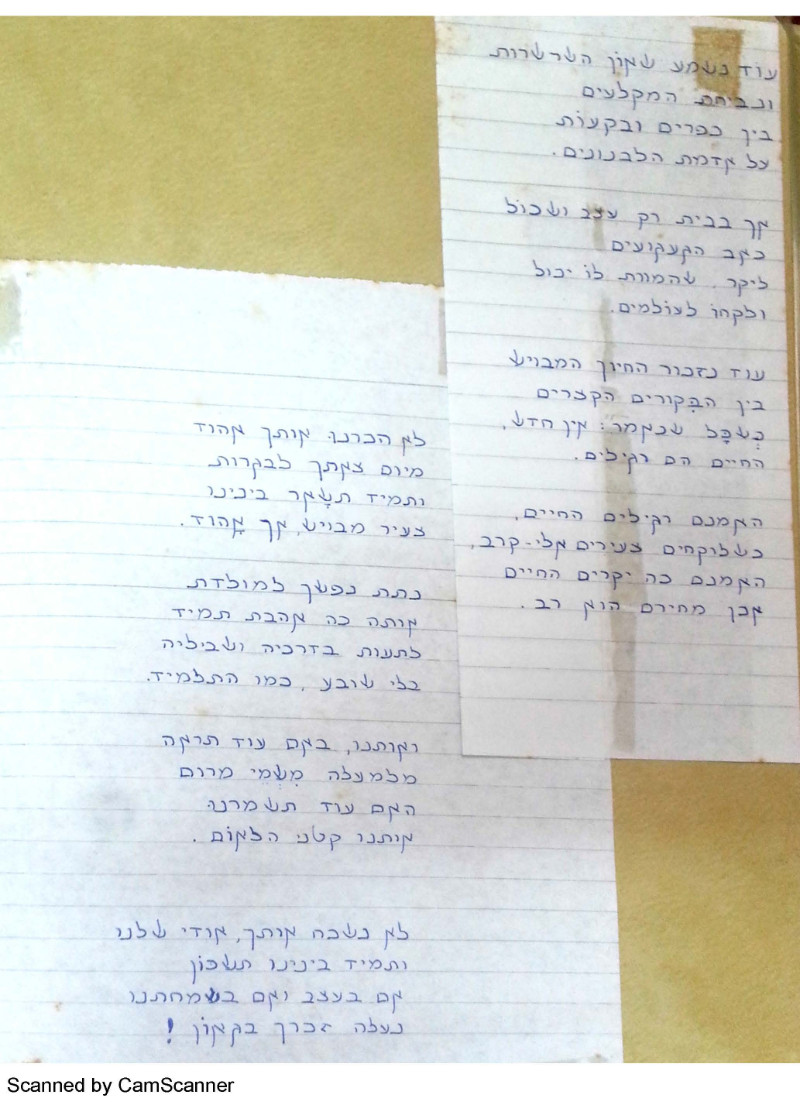 עוֹד נשמע שאוֹן השרשרות
ונביחת המקלעים
בין כפרים ובקעוֹת
על אדמת הלבנונים.
אך בבית רק עצב ושכוֹל
כאב הקעקועים
ליקר, שהמוות לוֹ יכול
ולקחוֹ לעוֹלמים.
עוד נזכור החיוך המבויש
בין הבִּקורים הקצרים
כְּשכָּל שנאמר: אין חדש,
החיים הם רגילים.
האמנם רגילים החיים,
כשלוקחים צעירים אלי-קרב,
האמנם כה יקרים החיים
אכן מחירם הוא רב.
לא הכרנוּ אותך אהוד
מיום צאתך לבקרות
ותמיד תשָאר בינינו
צעיר מבויש, אך אָהוד.
נתת נפשך למולדת
אותה כה אהבת תמיד
לתעות בדרכיה ושביליה
בלי שובע, כמו התלמיד.
ואותנו, באם עוד תראה
מלמעלה מִשְמֵי מרום
האם עוד תשמרנוּ
אותנו קטני הלאוֹם.
לא נשכח אותך, אודי שלנו
ותמיד בינינו תשכוֹן
אם בעצב ואם בשמחתנו
נעלה זכרך בגאוֹן!
Scanned by CamScanner